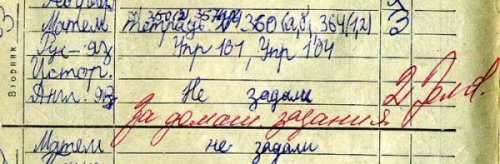 Матем тетрадь № 360 (а,б), 364 (1,2) 3
Рус-яз Упр 101, Упр 104
Истор.
Вторник
Англ. яз Не задали 2
За домаш задания
Матем не задали